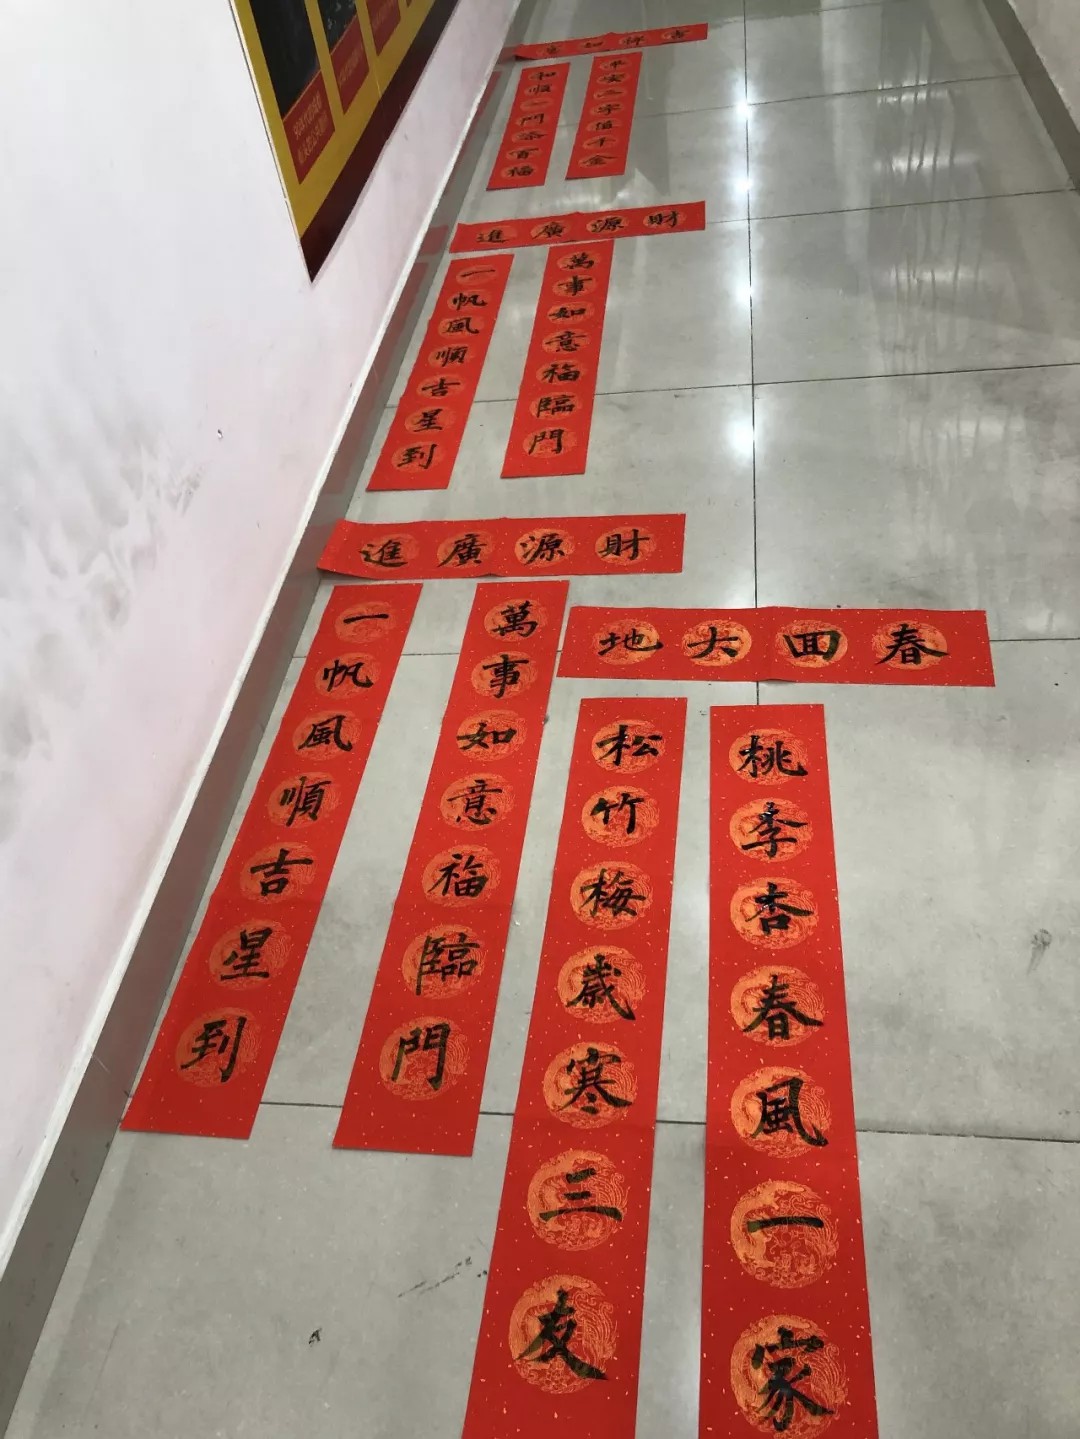 吉祥如意
平安二字值千金
和順一門添百福
財源廣進
萬事如意福臨門
一帆風順吉星到
財源廣進
萬事如意福臨門
一帆風順吉星到
春回大地
桃李杏春風一家
松竹梅歲寒三友